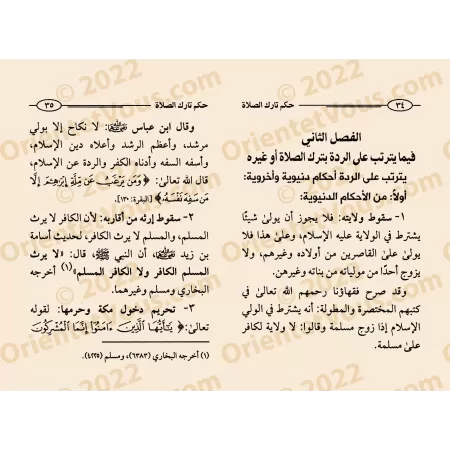 حكم تارك الصلاة
٣٤
الفصل الثاني
فيما يترتب على الردة بترك الصلاة أو غيره
يترتب على الردة أحكام دنيوية وأخروية:
أولاً: من الأحكام الدنيوية:
١- سقوط ولايته: فلا يجوز أن يولىٰ شيئًا
يشترط في الولاية عليه الإسلام، وعلىٰ هذا فلا
يولىٰ علىٰ القاصرين من أولاده وغيرهم، ولا
يزوج أحدًا من مولياته من بناته وغيرهن.
وقد صرح فقهاؤنا رحمهم الله تعالىٰ في
كتبهم المختصرة والمطولة: أنه يشترط في الولي
الإسلام إذا زوج مسلمة وقالوا: لا ولاية لكافر
علىٰ مسلمة.
حكم تارك الصلاة
٣٥
وقال ابن عباس ﵄: لا نكاح إلا بولي
مرشد، وأعظم الرشد وأعلاه دين الإسلام،
وأسفه السفه وأدناه الكفر والردة عن الإسلام،
قال الله تعالىٰ: ﴿وَمَن يَرْغَبُ عَن مِّلَّةِ إِبْرَٰهِـۧمَ إِلَّا
مَن سَفِهَ نَفْسَهُۥ﴾ [البقرة: ١٣٠].
٢- سقوط إرثه من أقاربه: لأن الكافر لا يرث
المسلم، والمسلم لا يرث الكافر، لحديث أسامة
بن زيد ﵄، أن النبي ﷺ، قال: «لا يرث
المسلم الكافر ولا الكافر المسلم»(١) أخرجه
البخاري ومسلم وغيرهما.
٣- تحريم دخول مكة وحرمها: لقوله
تعالىٰ: ﴿يَٰٓأَيُّهَا ٱلَّذِينَ ءَامَنُوٓا۟ إِنَّمَا ٱلْمُشْرِكُونَ
(١) أخرجه البخاري (٦٣٨٣)، ومسلم (٤٢٢٥).
© 2022
OrientetVous.com
© 2022
OrientetVous.com
© 2022
OrientetVous.com